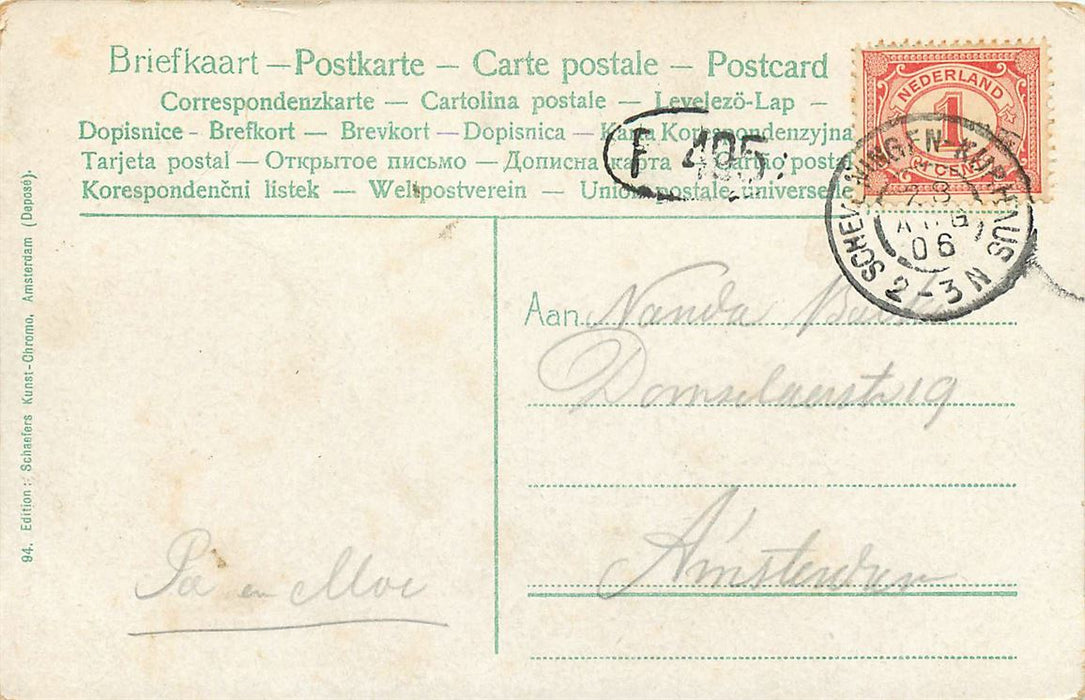 Briefkaart — Postkarte — Carte postale — Postcard
Correspondenzkarte — Cartolina postale — Levelező-Lap —
Dopisnice - Brefkort — Brevkort — Dopisnica — Karta Korespondenzyjna
Tarjeta postal — Открытое письмо — Дописна карта — postal
Korespondenčni listek — Weltpostverein — Union postale universelle
F 495
NEDERLAND
1
CENT
SCHEVENINGEN KURHAUS
AUG
06
2-3N
Aan Nanda
Domselaerstr 19
Amsterdam
Pa en Moe
94. Edition: Schaefers Kunst-Chromo, Amsterdam (Deposé).